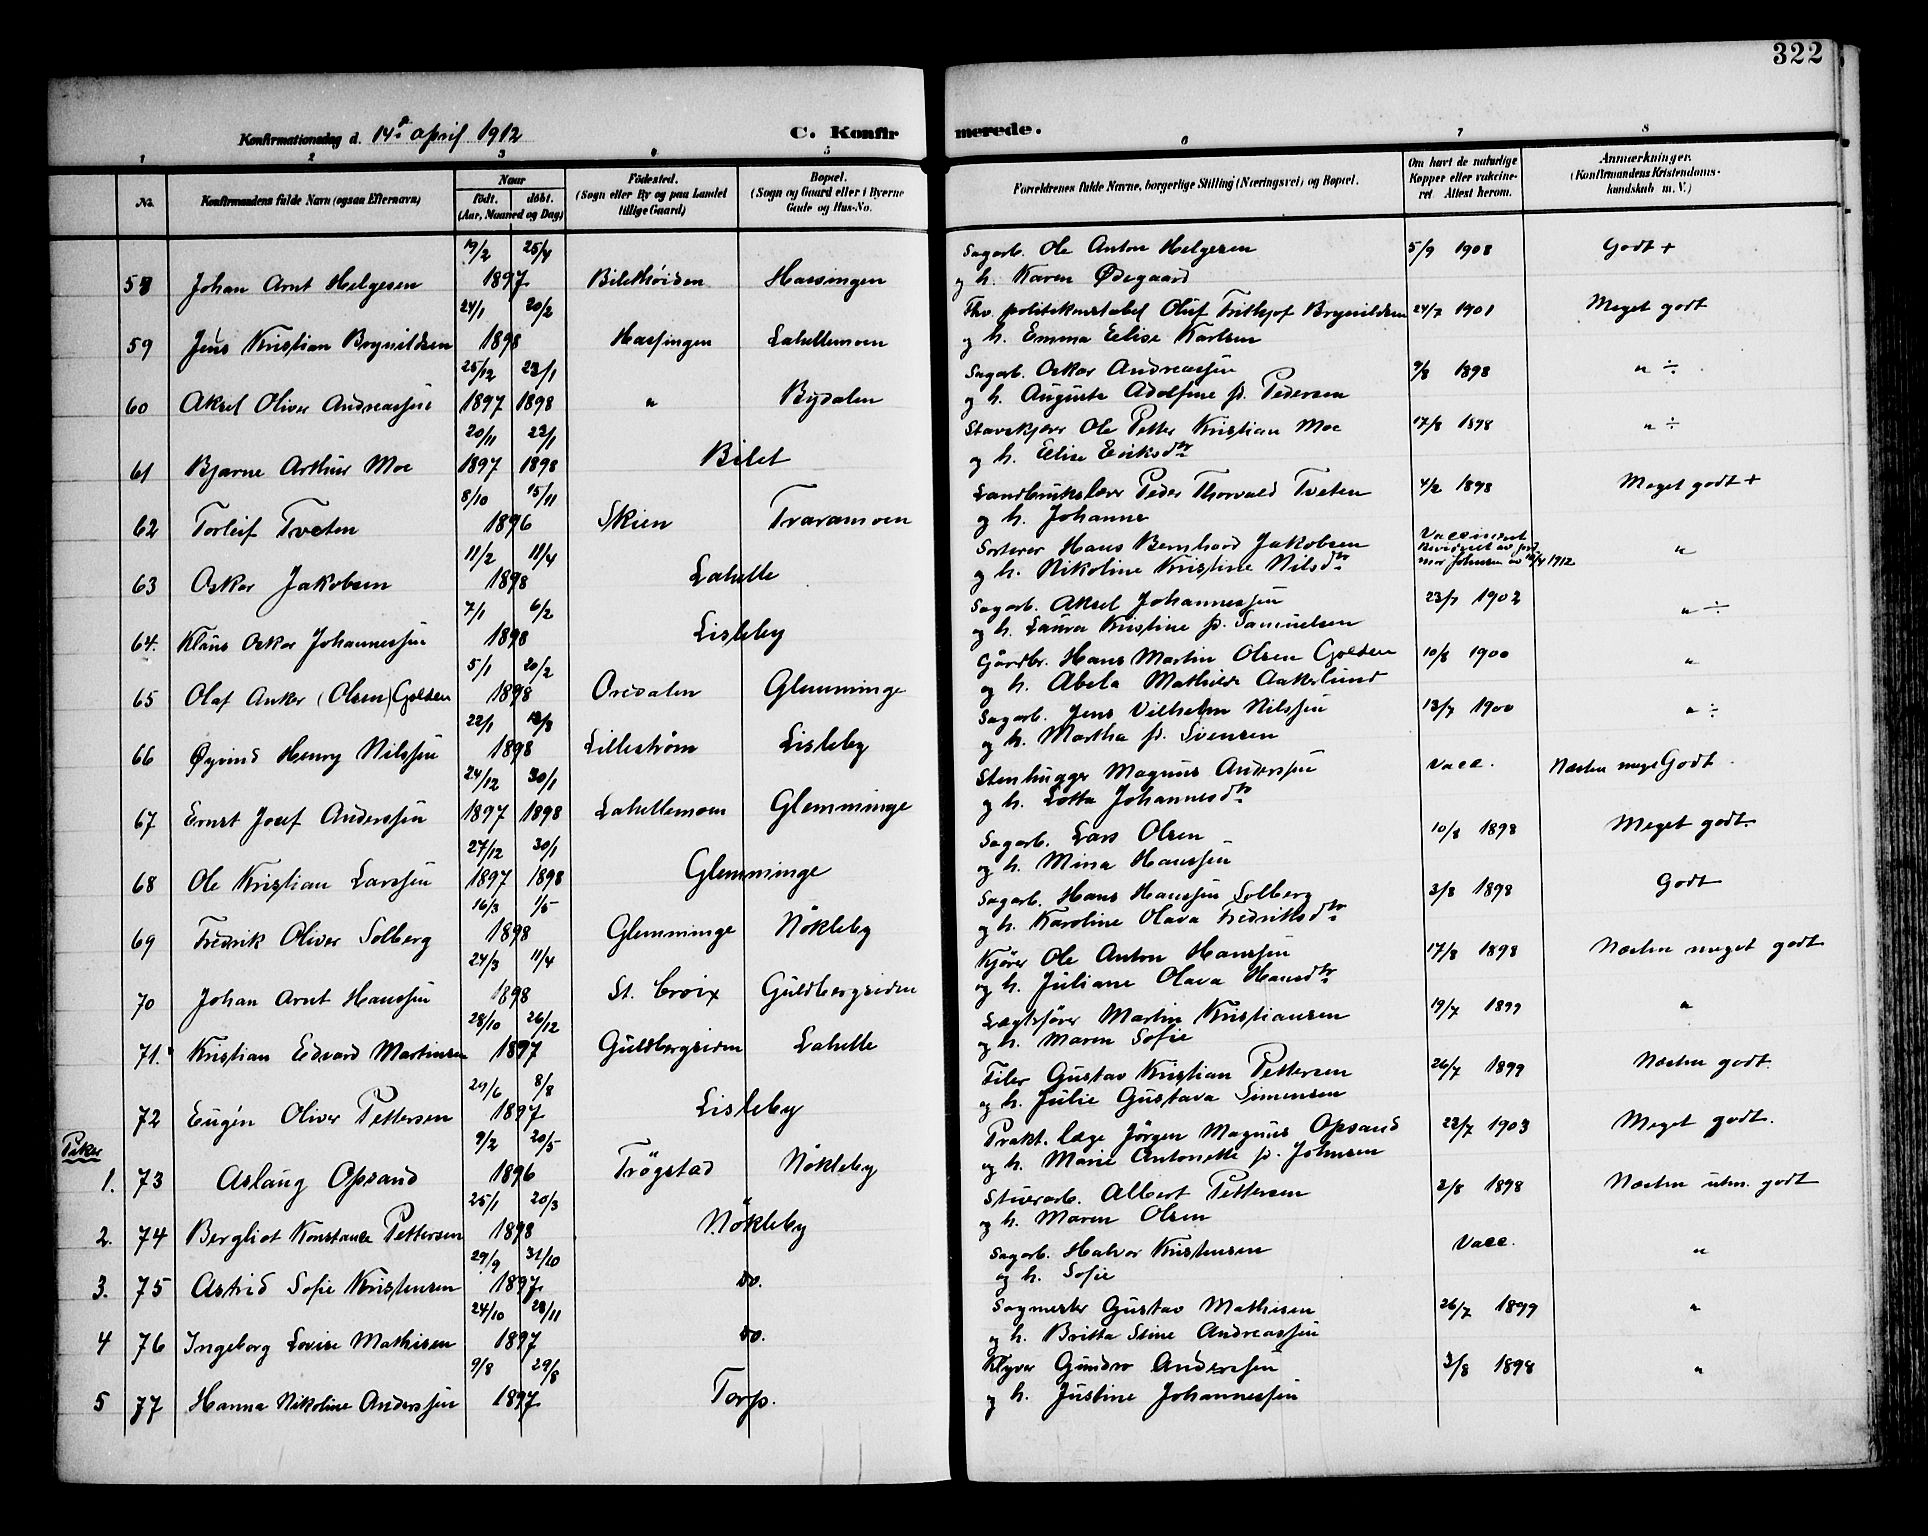 322
Konfirmationsdag d. 14de april 1912 C. Konfirmerede.
1 2 3 4 5 6 7 8
No. Konfirmandens fulde Navn (ogsaa Efternavn) Naar født. døbt. (Aar, Maaned og Dag) Fødested. (Sogn eller By og paa Landet tillige Gaard) Bopæl. (Sogn og Gaard eller i Byerne Gade og Hus-No. Forældrenes fulde Navne, borgerlige Stilling (Næringsvei) og Bopæl. Om havt de naturlige Kopper eller vaccineret Attest herom. Anmærkninger. (Konfirmandens Kristendomskundskab m. V.)
19/2 25/4 Sagarb. Ole Anton Helgesen 5/9 1908 Godt +
58 Johan Arnt Helgesen 1897 Hassingen og h. Karen Ødegaard
24/1 20/2 Fhv. politikonstabel Oluf Frithjof Brynildsen 24/7 1901 Meget godt
59 Jens Kristian Brynildsen 1898 Hassingen Lahellemoen og h. Emma Elise Karlsen
25/12 23/1 Sagarb. Oskar Andreassen 9/8 1898 " ÷
60 Aksel Oliver Andreassen 1897 1898 " Bydalen og h. Augusta Adolfine f. Pedersen
20/11 23/1 Ole Petter Kristian Moe 17/8 1898 " ÷
61 Bjarne Arthur Moe 1897 1898 Bilet og h. Elise Eriksdtr
8/10 15/11 Landbrukslærer Peder Thorvald Tveten 4/2 1898 Meget godt +
62 Torleif Tveten 1896 Skien Traramoen og h. Johanne
11/2 11/4 Sorterer Hans Bernhard Jakobsen Vaccineret "
63 Oskar Jakobsen 1898 Lahelle og h. Nikoline Kristine Nilsdtr Johnsen 1912
7/1 6/2 Sagarb. Aksel Johannessen 23/7 1902 " ÷
64. Klaus Oskar Johannessen 1898 Lisleby og h. Laura Kristine f. Samuelsen
5/1 20/2 Gårdbr. Hans Martin Olsen Golden 10/8 1900 "
65 Olaf Anker (Olsen) Golden 1898 Oredalen Glemminge og h. Abela Mathilde Aakerlund
22/1 Sagarb. Jens Vilhelm Nilssen 13/7 1900 " ÷
66 Øyvind Henry Nilssen 1898 Lillestrøm Lisleby og h. Martha f. Svensen
24/12 30/1 Stenhugger Magnus Anderssen Vacc. Næsten meget Godt
67 Ernst Josef Anderssen 1897 1898 Lahellemoen Glemminge og h. Lotta Johannesdtr
27/12 30/1 Sagarb. Lars Olsen 10/8 1898 Meget godt.
68 Ole Kristian Larssen 1897 1898 Glemminge og h. Mina Hanssen
16/3 1/5 Sagarb. Hans Hanssen Solberg 3/8 1898 Godt
69 Fredrik Oliver Solberg 1898 Glemminge Nökleby og h. Karoline Olava Fredriksdtr
24/3 11/4 Kjører Ole Anton Hanssen 17/8 1898 Næsten meget godt
70 Johan Arnt Hanssen 1898 St. Croix Guldbergsiden og h. Juliane Olava Hansdtr
28/10 26/12 Lægtsfører Martin Kristiansen 19/7 1899 "
71. Kristian Edvard Martinsen 1897 Guldbergsiden Lahelle og h. Maren Sofie
29/6 8/8 Filer Gustav Kristian Pettersen 26/7 1899 Næsten godt.
72 Eugén Oliver Pettersen 1897 Lisleby og h. Julie Gustava Simensen
Piker 9/2 20/5 Prakt. læge Jørgen Magnus Opsand 23/7 1903 Meget godt.
1. 73 Aslaug Opsand 1896 Trögstad Nökleby og h. Marie Antonette f. Johnsen
25/1 20/3 Albert Pettersen 2/8 1898 Næsten utm. godt
2. 74 Bergliot Konstance Pettersen 1898 Nökleby og h. Maren Olsen
29/9 31/10 Sagarb. Halvor Kristensen Vacc. "
3. 75 Astrid Sofie Kristensen 1897 do. og h. Sofie
24/10 28/11 Sagmester Gustav Mathisen 26/7 1899 "
4 76 Ingeborg Lovise Mathisen 1897 do. og h. Britta Stine Andreassen
9/8 29/8 Klyver Gundro Anderssen 3/8 1898 "
5 77 Hanna Nikoline Anderssen 1897 Torp. og h. Justine Johannessen